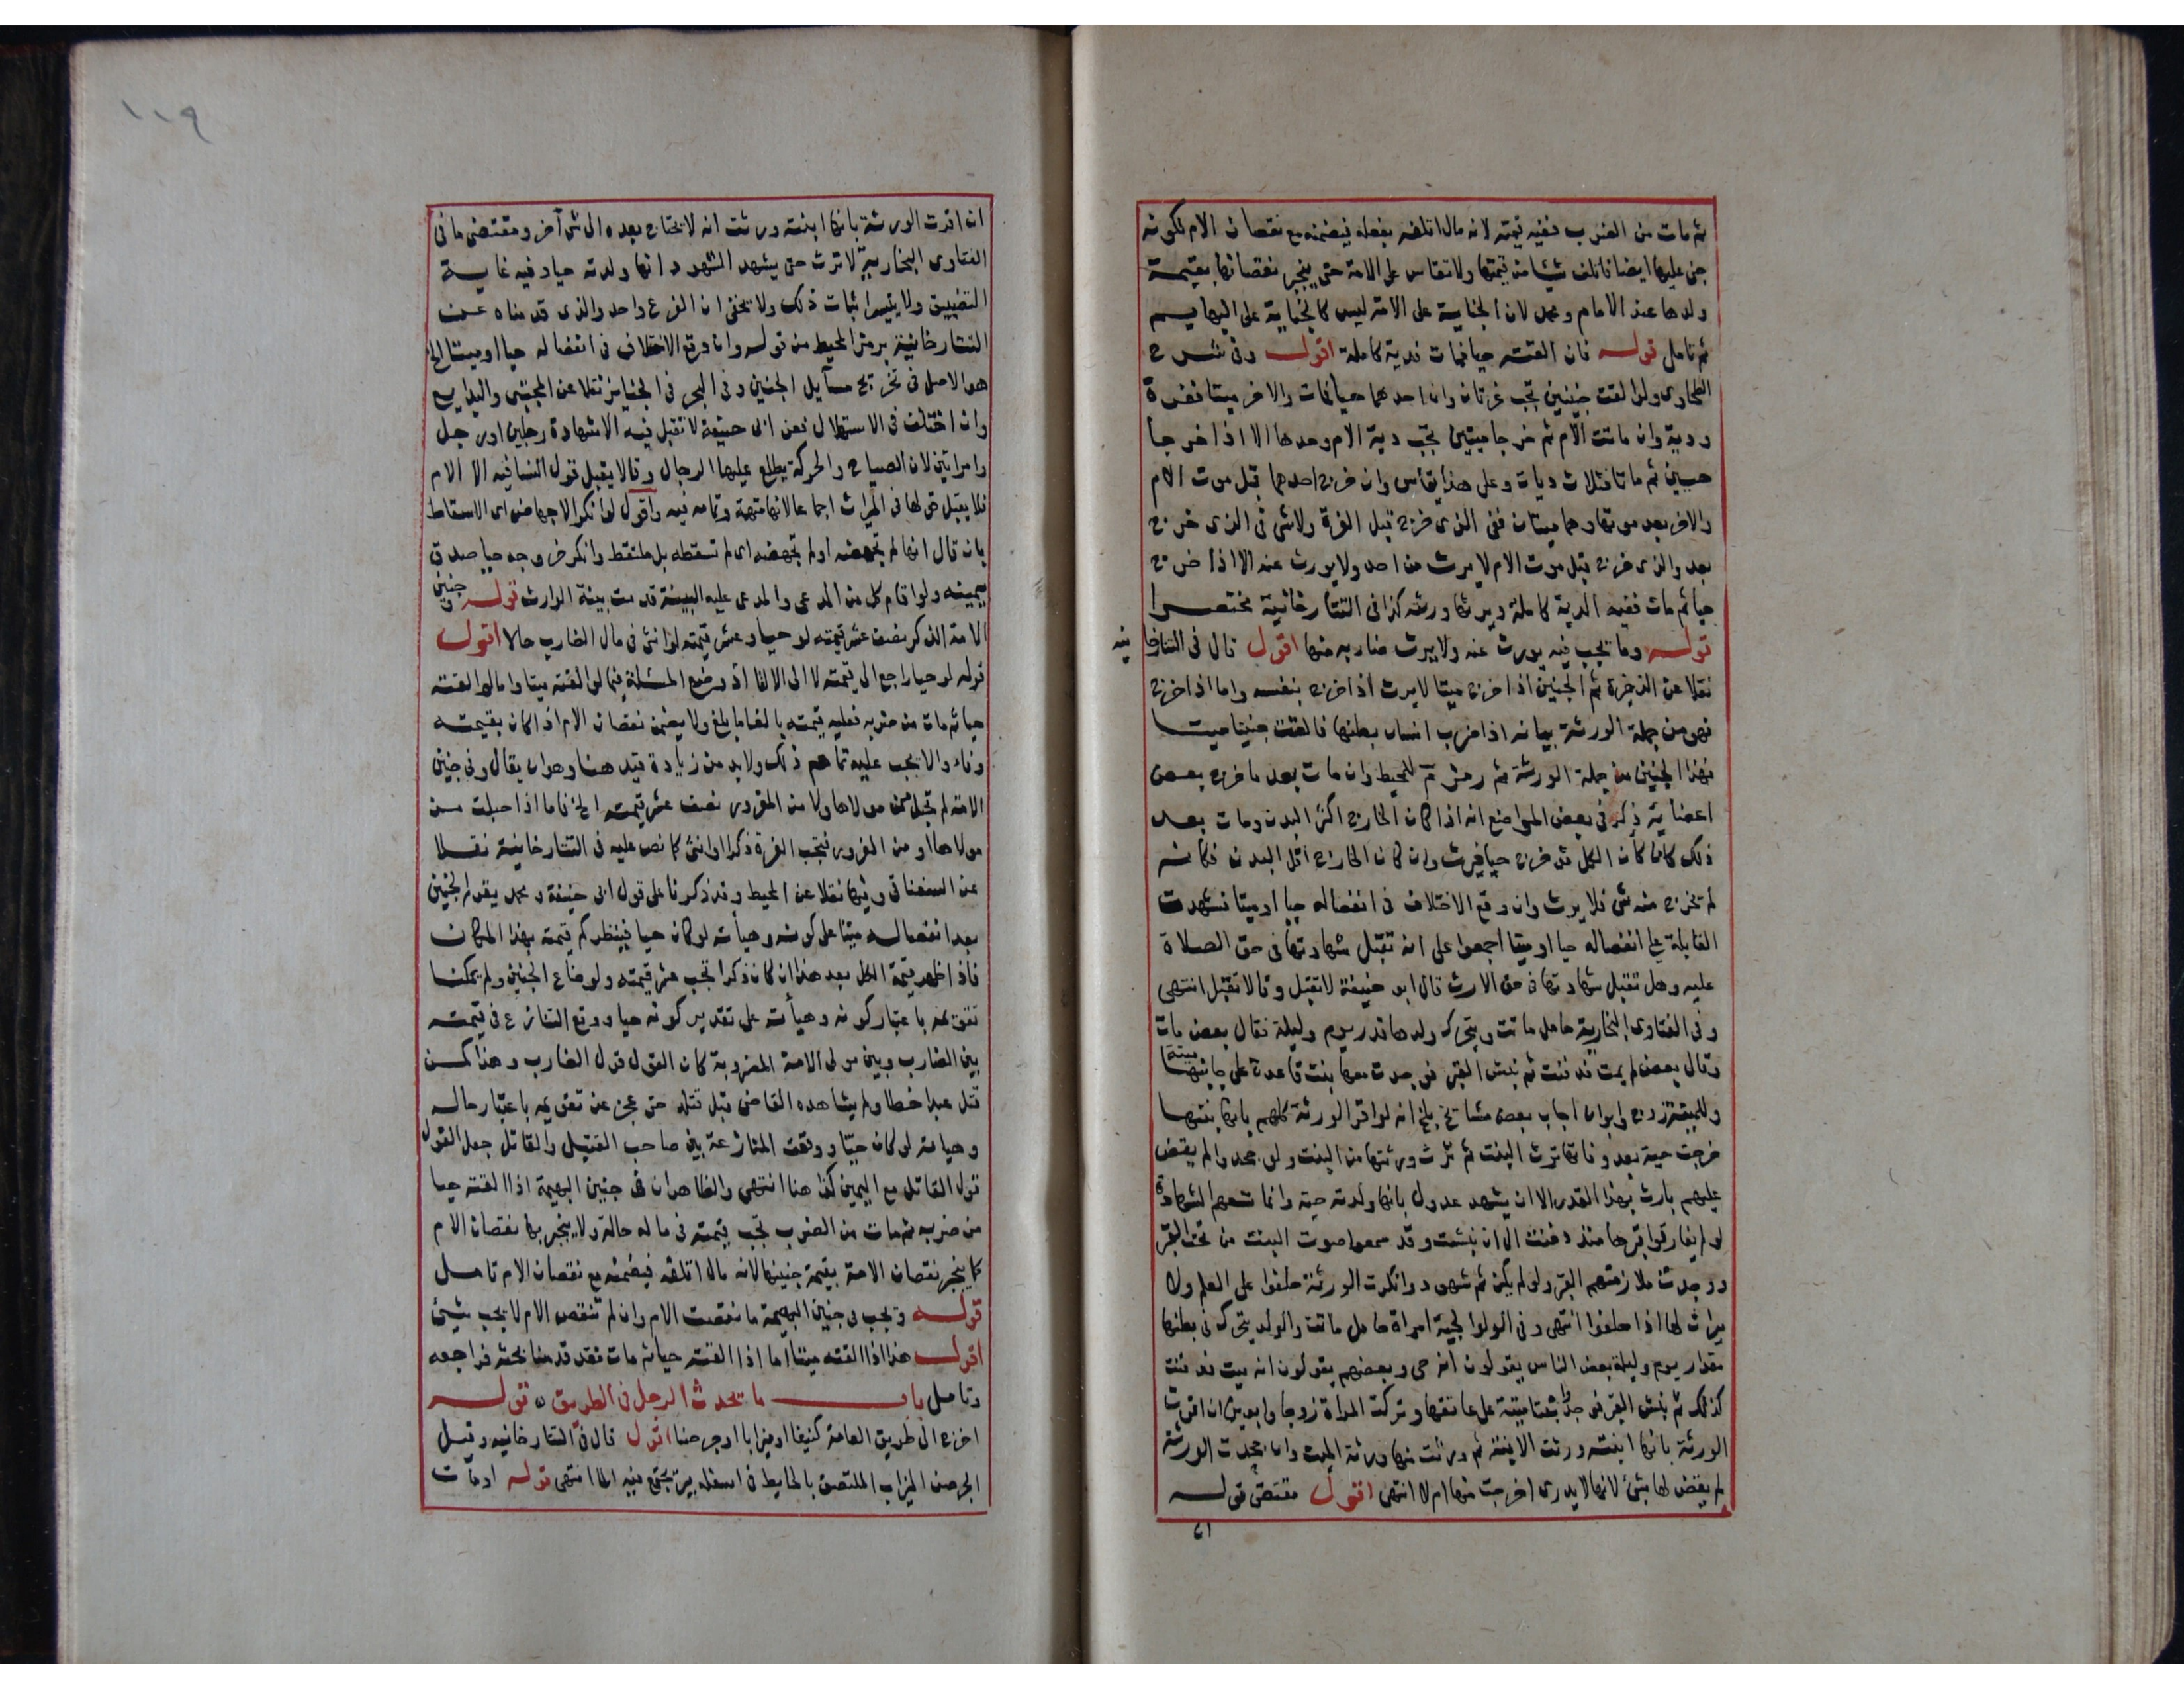 ثم مات من الضرب ففيه قيمته لانه مال اتلفه بفعله فيضمنه مع نقصان الام لكونه
جنى عليها ايضا فاتلف شيئا من قيمتها ولا تقاس على الامة حتى ينجبر نقصانها بقيمة
ولدها عند الامام ومحمد لان الجناية على الامة ليس كالجناية على البهايم
ثم تامل قوله فان القته حيا فمات فدية كاملة اقول وفى شرح
الطحاوى ولو القت جنينين تجب غرتان وان احدهما حيا فمات والاخر ميتا فغرة
ودية وان ماتت الام ثم خرجا ميتين تجب دية الام وحدها الا اذا خرجا
حيين ثم ماتا فثلاث ديات وعلى هذا يقاس وان خرج احدهما قبل موت الام
والاخر بعد موتها وهما ميتان ففى الذى خرج قبل الغرة ولا شى فى الذى خرج
بعد والذى خرج قبل موت الام لا يرث من احد ولا يورث عنه الا اذا خرج
حيا ثم مات ففيه الدية كاملة ويرثها ورثته كذا فى التتارخانية مختصرا
قوله وما يجب فيه يورث عنه ولا يرث ضاربه منها اقول قال فى التتارخا
نيه
نقلا عن الذخيرة ثم الجنين اذا خرج ميتا لا يرث اذا خرج بنفسه واما اذا اخرج
فهو من جملة الورثة بيانه اذا ضرب انسان بطنها فالقت جنينا ميتا
فهذا الجنين من جملة الورثة ثم رمز للمحيط وان مات بعد ما خرج بعض
اعضايه ذكر فى بعض المواضع انه اذا كان الخارج اكثر البدن ومات بعد
ذلك كان كأن الكل قد خرج حيا فيرث وان كان الخارج اقل البدن فكانه
لم يخرج منه شى فلا يرث وان وقع الاختلاف فى انفصاله حيا او ميتا فشهدت
القابلة على انفصاله حيا او ميتا اجمعوا على انه تقبل شهادتها فى حق الصلاة
عليه وهل تقبل شهادتها فى حق الارث قال ابو حنيفة لا تقبل وقالا تقبل انتهى
وفى الفتاوى البخارية حامل ماتت ويتحرك ولدها قدر يوم وليلة فقال بعض مات
وقال بعض لم يمت فدفنت ثم نبش القبر فوجدت معها بنت قاعدة على جانبها
ميتة
وللميتة زوج وابوان اجاب بعض مشايخ بلخ انه لو اقر الورثة كلهم بانها بنتها
خرجت حية بعد وفاتها ترث البنت ثم ترث ورثتها من البنت ولو جحدوا لم يقض
عليهم بارث بهذا القدر الا ان يشهد عدول بانها ولدته حية وانما تسعهم الشهادة
لو لم يفارقوا قبرها منذ دفنت الى ان نبشت وقد سمعوا صوت البنت من تحت القبر
ووجدت ملازمتهم القبر ولو لم يكن ثم شهود وانكرت الورثة حلفوا على العلم ولا
ميراث لها اذا حلفوا انتهى وفى الولوالجية امراة حامل ماتت والولد يتحرك فى بطنها
مقدار يوم وليلة بعض الناس يقولون انه حى وبعضهم يقولون انه ميت فدفنت
كذلك ثم نبش القبر فوجد بنتا ميتة على عاتقها وتركت المراة زوجا وابوين ان اقرت
الورثة بانها ابنته ورثت الابنة ثم ورثت منها ورثة الميت وان جحدت الورثة
لم يقض لها بشئ لانها لا يدرى اخرجت منها ام لا انتهى اقول مقتضى قوله
ان
١١٩
ان اقرت الورثة بانها ابنته ورثت انه لا يحتاج بعده الى شى آخر ومقتضى ما فى
الفتاوى البخارية لا ترث حتى يشهد الشهود انها ولدته حيا وفيه غاية
التضييق ولا يتيسر اثبات ذلك ولا يخفى ان الفرع واحد والذى قدمناه عن
التتارخانية برمز المحيط من قوله وان وقع الاختلاف فى انفصاله حيا او ميتا الخ
هو الاصل فى تخريج مسايل الجنين وفى البحر فى الجنايز نقلا عن المجتبى والبدايع
وان اختلف فى الاستهلال فعن ابى حنيفة لا تقبل فيه الا شهادة رجلين او رجل
وامراتين لان الصياح والحركة يطلع عليها الرجال وقالا يقبل قول النسا فيه الا الام
فلا يقبل قولها فى الميراث اجماعا لانها متهمة وتمامه فيه واقول لو انكر الاجهاض اى الاسقاط
بان قال انها لم تجهضه اولم تجهضه اى لم تسقطه بل ملتقط وانكر خروجه حيا صدق
بيمينه ولو اقام كل من المدعى والمدعى عليه البينة قدمت بينة الوارث قوله وفى جنين
الامة الذكر نصف عشر قيمته لو حيا وعشر قيمته لو انثى فى مال الضارب حالا اقول
قوله لو حيا راجع الى قيمته لا الى الالقا اذ وضع المسئلة فيما لو القته ميتا واما لو القته
حيا ثم مات من ضربه فعليه قيمته بالغا ما بلغ ولا يضمن نقصان الام اذا كان بقيمته
وفاء والا يجب عليه تمام ذلك ولا بد من زيادة قيد هنا وهو ان يقال وفى جنين
الامة لم تحبل من مولاها ولا من المغرور نصف عشر قيمته الخ فاما اذا حبلت من
مولاها او من المغرور فتجب الغرة ذكرا او انثى كما نص عليه فى التتارخانية نقلا
عن السغناقى وفيها نقلا عن المحيط وقد ذكرنا على قول ابى حنيفة ومحمد يقوم الجنين
بعد انفصاله ميتا على كونه وحيأته لو كان حيا فينظر كم قيمته بهذا المكان
فاذا ظهر قيمة الكل بعد هذا ان كان ذكرا تجب عشر قيمته ولو ضاع الجنين ولم يمكنا
تقويمه باعتبار كونه وهيأته على تقدير كونه حيا ووقع التنازع فى قيمته
بين الضارب وبين مولى الامة المضروبة كان القول قول الضارب وهذا كمن
قتل عبدا خطا ولم يشاهده القاضى قبل قتله حتى عجز عن تقويمه باعتبار حاله
وهيأته لو كان حيا ووقعت المنازعة بين صاحب القتيل والقاتل جعل القول
قول القاتل مع اليمين كذا هنا انتهى والظاهر ان فى جنين البهيمة اذا القته حيا
من ضربه ثم مات من الضرب تجب قيمته فى ماله حالة ولا ينجبر بها نقصان الام
كما ينجبر نقصان الامة بقيمة جنينها لانه مال اتلفه فيضمنه مع نقصان الام تامل
قوله ويجب فى جنين البهيمة ما نقصت الام وان لم تنقص الام لا يجب شيئ
اقول هذا اذا القته ميتا اما اذا القته حيا ثم مات فقد قدمنا بحثه فراجعه
وتامل باب ما يحدث الرجل فى الطريق قوله
اخرج الى طريق العامة كنيفا او ميزابا او جرصنا اقول قال فى التتارخانيه وقيل
الجرصن الميزاب الملتصق بالحايط فى اسفله بير يجتمع فيه الما انتهى قوله او مات